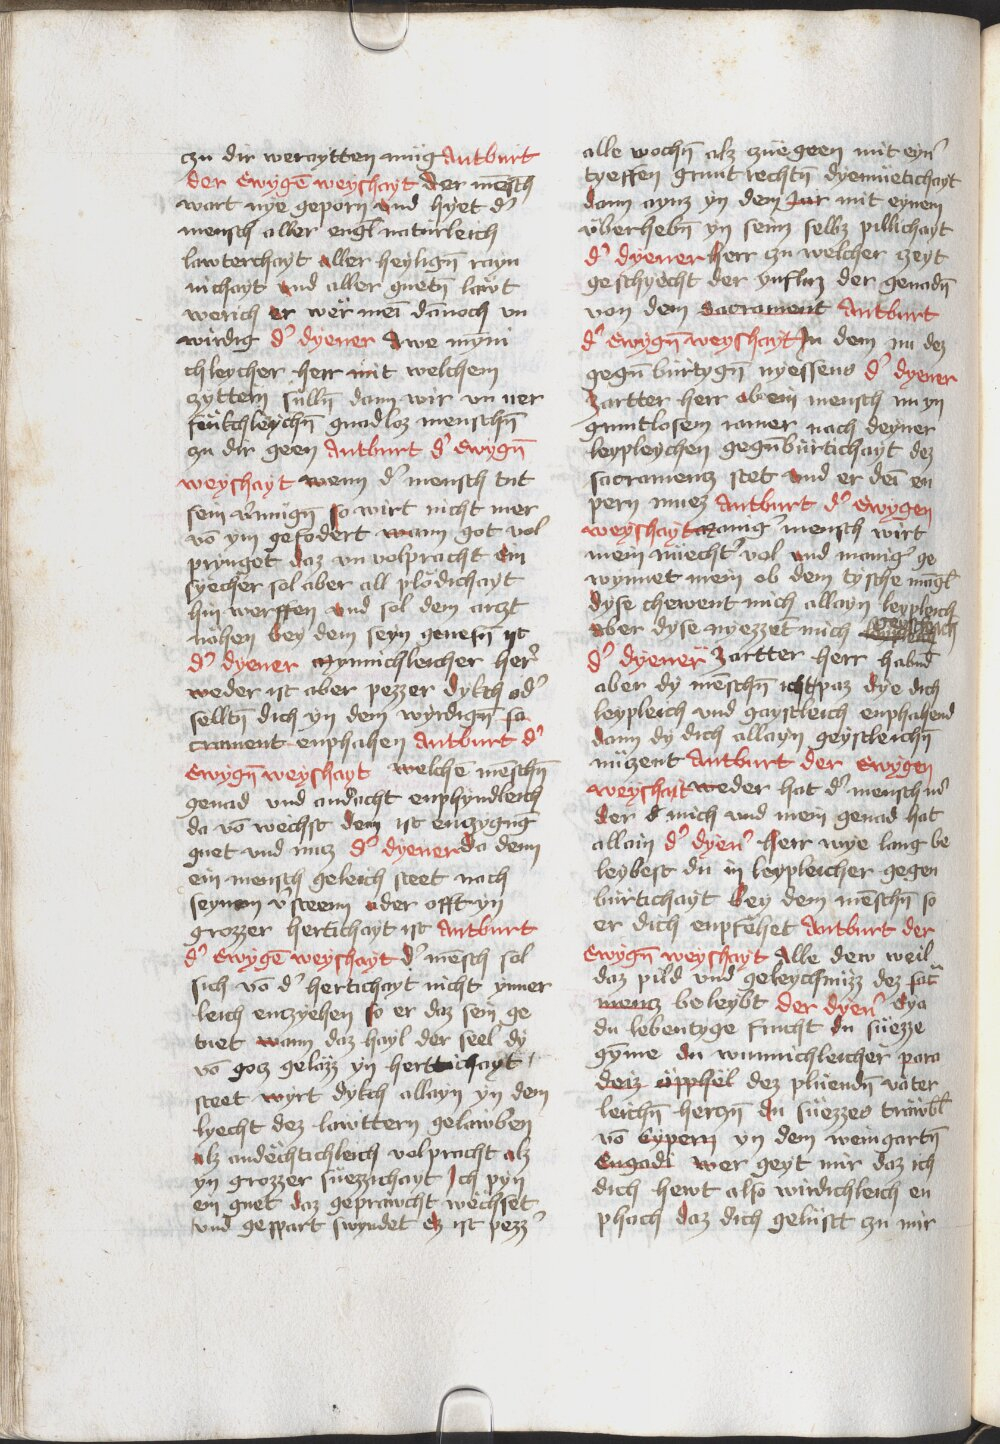 czu dir weraytten müg Antburt
der Ewygē weyschayt Der mēsch
wart nye geporn vnd hyet d'
mensch aller engl naturleich
lawterchayt aller heylign̄ rayn
nichayt vnd aller guetn̄ lawt
werich er wër mēi dānoch vn
wirdig d' dyener Awe mynni
chleycher herr mit welchem
zyttern sülln̄ dann wir vn ver
gnadloz menschn̄
zu dir geen Antburt d' Ewygn̄
weyschayt wenn d' mensch tut
sein v'mügn̄ so wirt nicht mer
vō ym gefodert wann got vol
prynget daz vn volpracht Ein
syecher sol aber all plödichayt
hin werffen vnd sol dem arczt
nahen bey dem seyn genesn̄ ist
d' dyener Mynnichleicher her'
weder ist aber pezzer dykch od'
selltn̄ dich yn dem wyrdign̄ sa
crament enphahen Antburt d'
Ewygn̄ weyschayt welchē mēschn̄
genad vnd andacht enphyndleich
da vō wechst dem ist
guet vnd nucz d' dyener da denn
ein mensch geleich steet nach
seynem v'steenn oder offt yn
grozzer hertichayt ist Antburt
d' Ewygē weyschayt d' mēsch sol
sich vō d' hertichayt nicht ynner
leich enczyehen so er daz sein ge
tuet wann daz hayl der seel dy
vō gocz gelazz yn herttichayt
steet wyrt dykch allayn yn dem
lyecht dez lawttern gelawben
alz andëchtichleich volpracht alz
yn grozzer süezzichayt Ich pyn
ein guet daz geprawcht wechset
vnd gespart swyndet Ez ist pezz'
alle wochn̄ alz zuegeen mit eyn'
tyeffen grunt rechtn̄ dyemüetichayt
dann aynz yn dem Jar mit eynem
überhebn̄ yn seinz selbz pillichayt
d' dyener herr zu welcher zeyt
geschyecht der ynfluz der genadn̄
von dem Sacrament Antburt
d' Ewygn̄ weyschayt In dem nu dez
gegn̄ burtygn̄ nyessens d' dyener
Zartter herr ob ein mensch nu yn
gruntlosem iamer nach deyner
leypleychen gegn̄bürtichayt dez
sacramencz stet vnd er dēi en
pern muez Antburt d' Ewygen
weyschayt Manig' mensch wirt
mein nüecht' vol vnd manig' ge
wynnet mein ob dem tysche magl̄
Dyse chewent mich allayn leypleich
Aber dyse nyezzet mich geystleich
d' dyener Zartter herr habnd
aber dy mēschn̄ ichtz paz dye dich
leypleich vnd gaystleich enphahend
dann dy dich allayn geystleichn̄
nüzent Antburt der Ewygen
weyschait weder hat d' mensch m'
der d mich vnd mein genad hat
allain d' dyen' Herr wye lang be
leybest du in leypleicher gegen
bürtichayt bey dem mēschn̄ so
er dich enpfëhet Antburt der
Ewygn̄ weyschayt Alle dew weil
daz pild vnd geleychnüzz dez sac̄
mencz beleybt der dyen' Eya
du lebentyge frucht du süezze
gymme du wunnichleicher para
deiz öpphel dez plüendn̄ väter
leichn̄ herczn̄ du süezzes trawbl̄
vō Cypern yn dem weingartn̄
Engadi Wer geyt mir daz ich
dich hewt also wirdichleich en
phach daz dich gelüstt zu mir